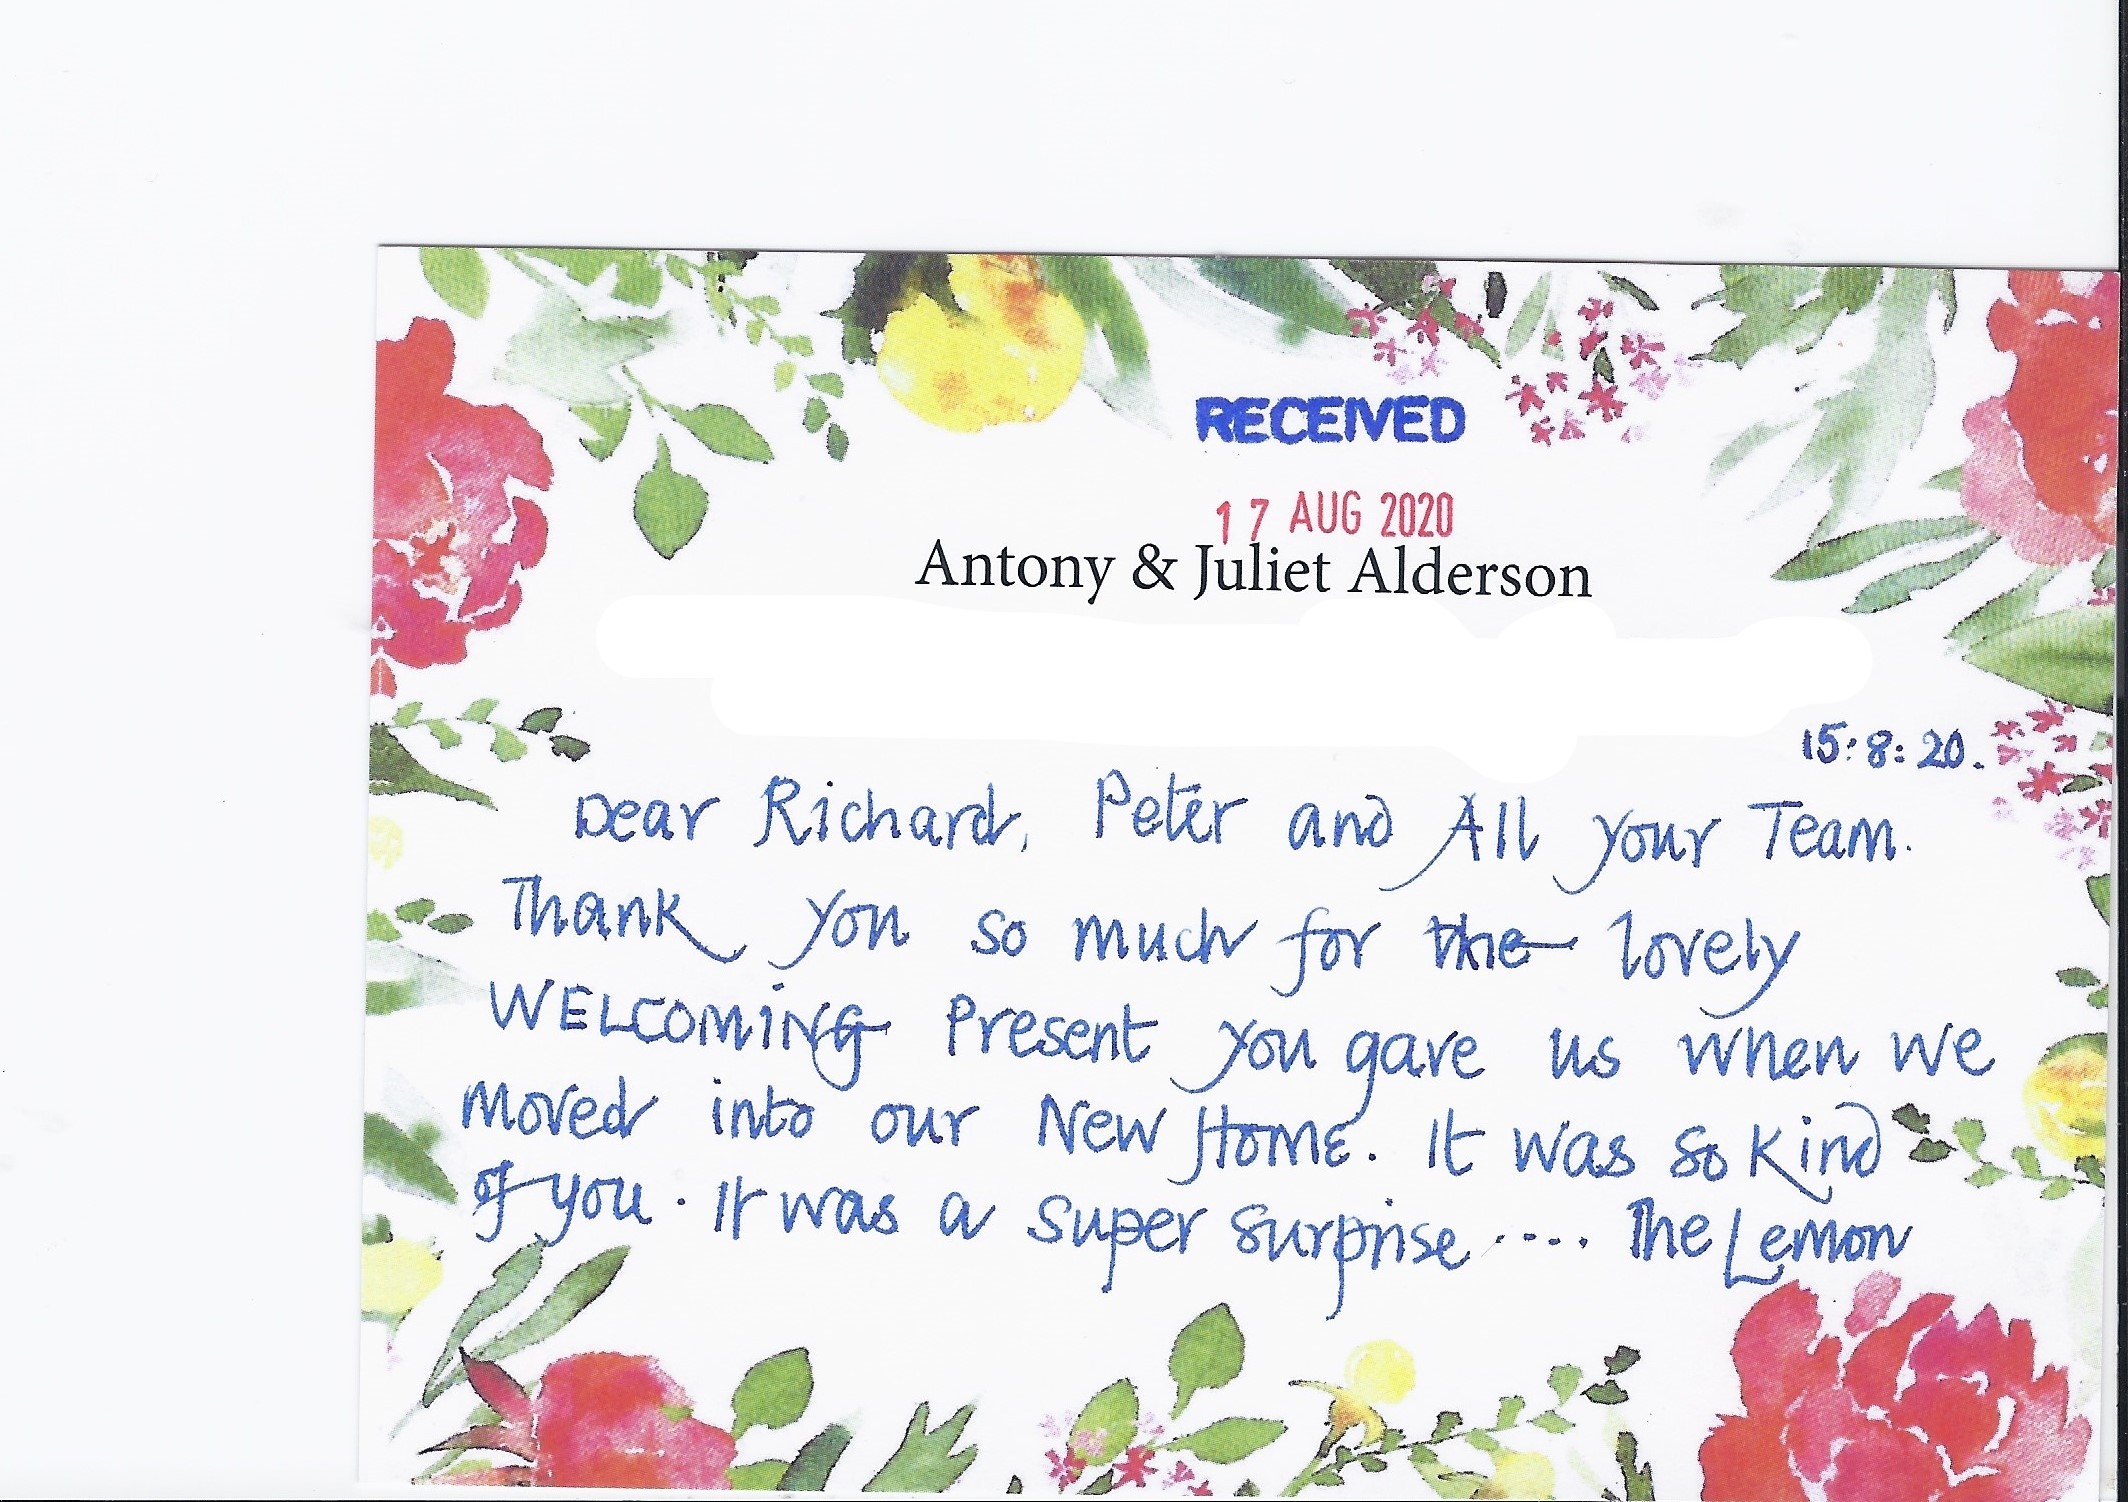 RECEIVED
17 AUG 2020
Antony & Juliet Alderson
15.8.20.
Dear Richard, Peter and All your Team.
Thank you so much for the lovely
WELCOMING Present you gave us when we
moved into our New Home. It was so kind
of you. It was a super surprise .... The Lemon